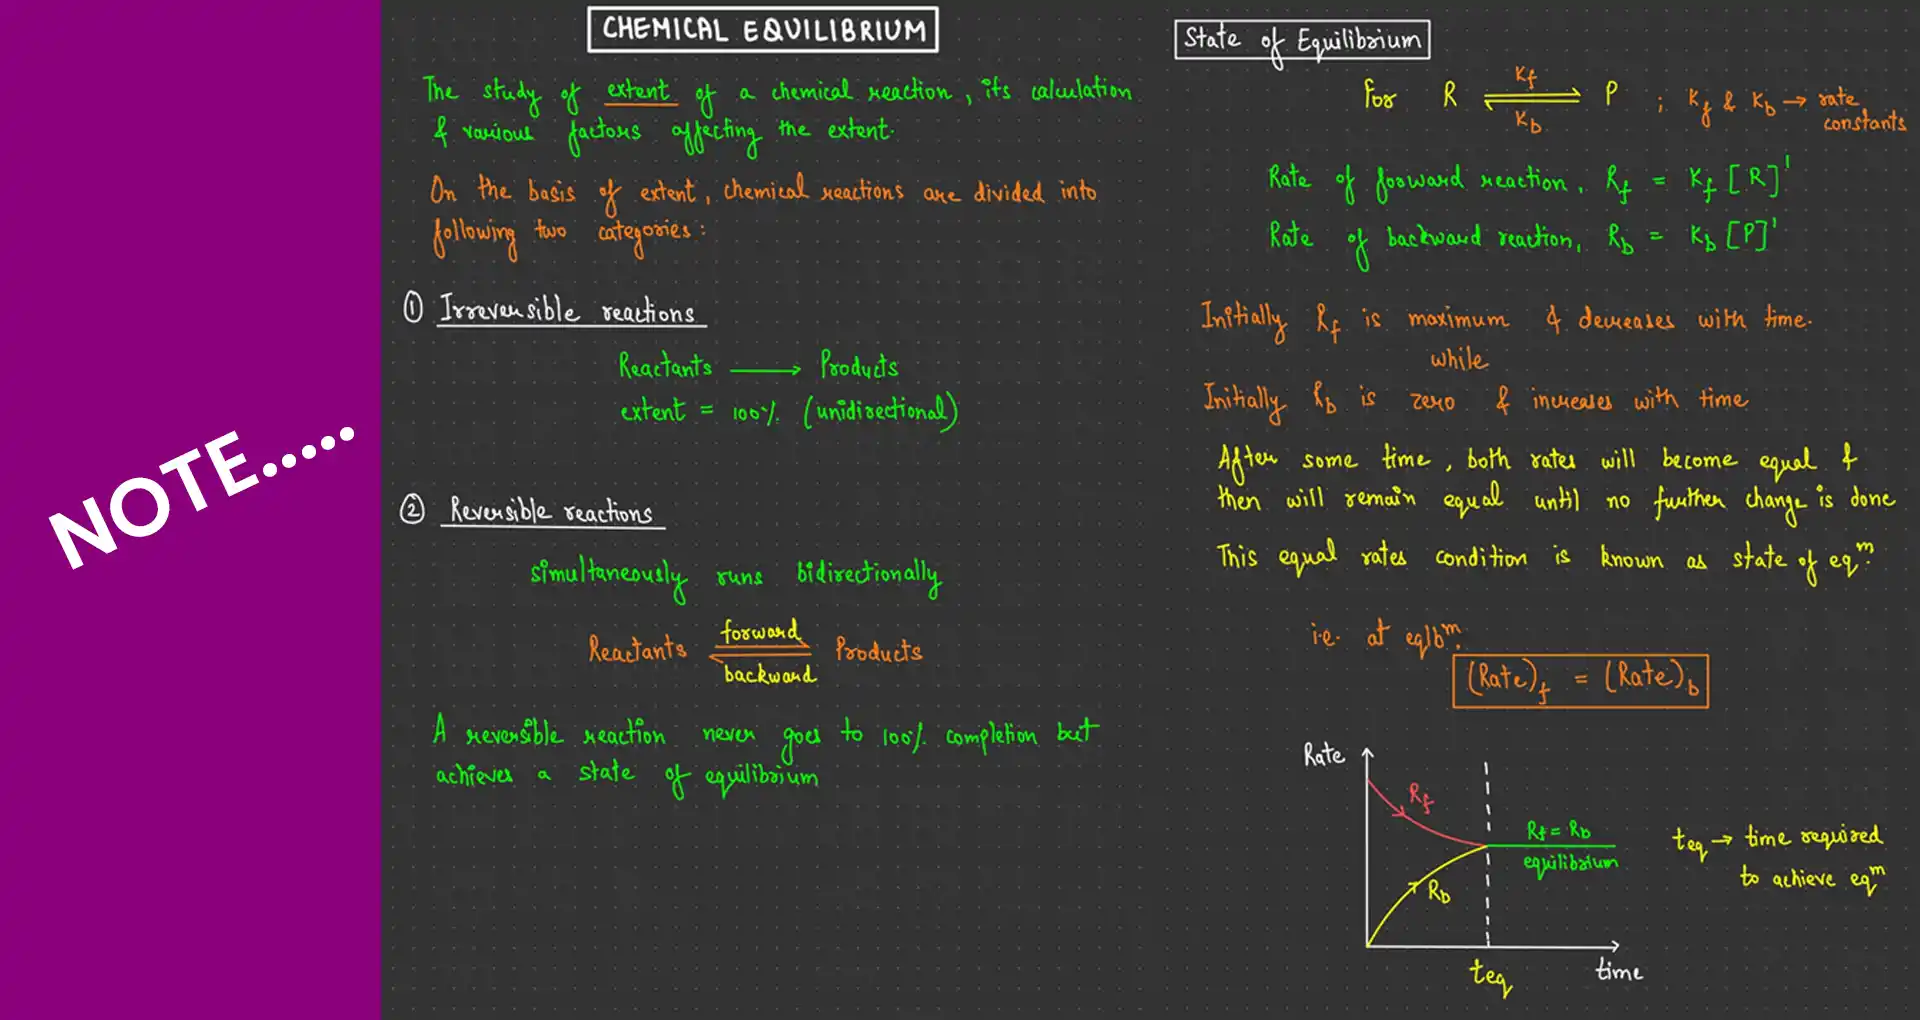 NOTE.....
CHEMICAL EQUILIBRIUM
The study of extent of a chemical reaction, its calculation
& various factors affecting the extent.
On the basis of extent, chemical reactions are divided into
following two categories:
① Irreversible reactions
Reactants ⟶ Products
extent = 100% (unidirectional)
② Reversible reactions
simultaneously runs bidirectionally
forward
Reactants ⇌ Products
backward
A reversible reaction never goes to 100% completion but
achieves a state of equilibrium
State of Equilibrium
Kf
For R ⇌ P ; Kf & Kb → rate
Kb
constants
Rate of forward reaction, Rf = Kf [R]¹
Rate of backward reaction, Rb = Kb [P]¹
Initially Rf is maximum & decreases with time.
while
Initially Rb is zero & increases with time
After some time, both rates will become equal &
then will remain equal until no further change is done
This equal rates condition is known as state of eqᵐ.
i.e. at eqlbᵐ.
(Rate)f = (Rate)b
Rate
Rf
Rf = Rb
equilibrium
Rb
teq
time
teq → time required
to achieve eqᵐ